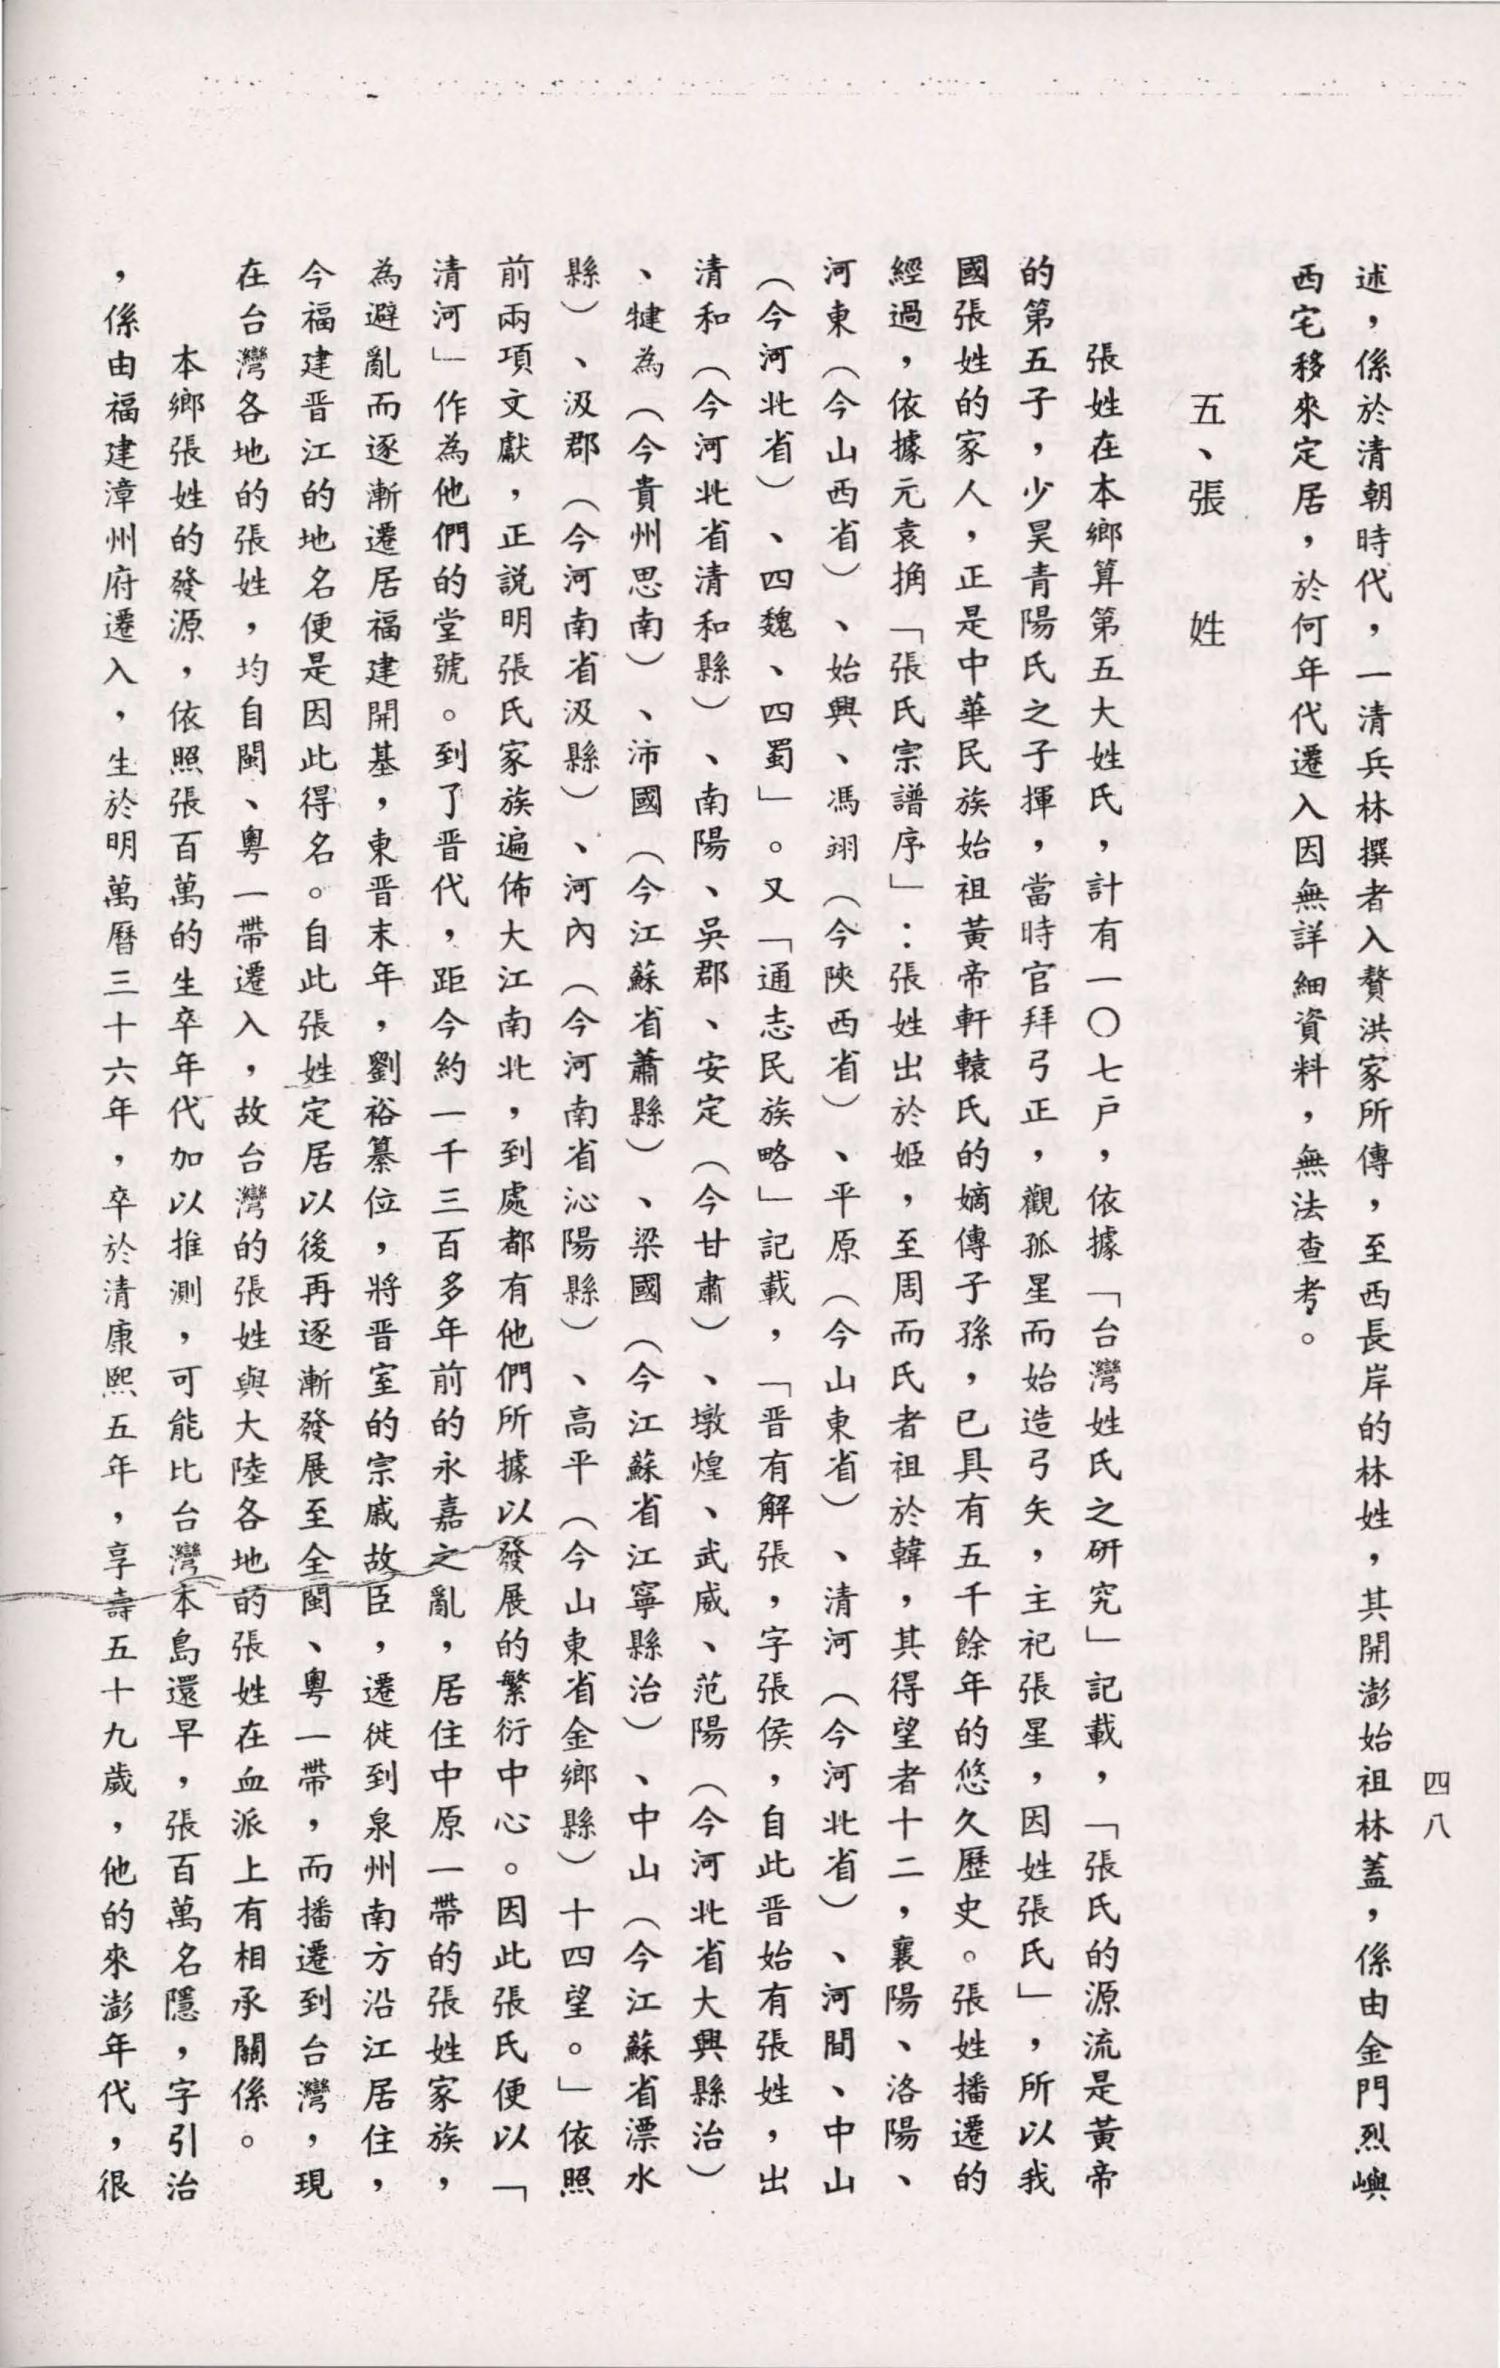 四八
述，係於清朝時代，一清兵林撰者入贅洪家所傳，至西長岸的林姓，其開澎始祖林蓋，係由金門烈嶼
西宅移來定居，於何年代遷入因無詳細資料，無法查考。
五、張　姓
張姓在本鄉算第五大姓氏，計有一〇七戶，依據「台灣姓氏之研究」記載，「張氏的源流是黃帝
的第五子，少昊青陽氏之子揮，當時官拜弓正，觀孤星而始造弓矢，主祀張星，因姓張氏」，所以我
國張姓的家人，正是中華民族始祖黃帝軒轅氏的嫡傳子孫，已具有五千餘年的悠久歷史。張姓播遷的
經過，依據元袁桷「張氏宗譜序」：張姓出於姬，至周而氏者祖於韓，其得望者十二，襄陽、洛陽、
河東（今山西省）、始興、馮翊（今陝西省）、平原（今山東省）、清河（今河北省）、河間、中山
（今河北省）、四魏、四蜀」。又「通志民族略」記載，「晋有解張，字張侯，自此晋始有張姓，出
清和（今河北省清和縣）、南陽、吳郡、安定（今甘肅）、墩煌、武威、范陽（今河北省大興縣治）
、犍為（今貴州思南）、沛國（今江蘇省蕭縣）、梁國（今江蘇省江寧縣治）、中山（今江蘇省漂水
縣）、汲郡（今河南省汲縣）、河內（今河南省沁陽縣）、高平（今山東省金鄉縣）十四望。」依照
前兩項文獻，正説明張氏家族遍佈大江南北，到處都有他們所據以發展的繁衍中心。因此張氏便以「
清河」作為他們的堂號。到了晋代，距今約一千三百多年前的永嘉之亂，居住中原一帶的張姓家族，
為避亂而逐漸遷居福建開基，東晋末年，劉裕纂位，將晋室的宗戚故臣，遷徙到泉州南方沿江居住，
今福建晋江的地名便是因此得名。自此張姓定居以後再逐漸發展至全閩、粵一帶，而播遷到台灣，現
在台灣各地的張姓，均自閩、粵一帶遷入，故台灣的張姓與大陸各地的張姓在血派上有相承關係。
本鄉張姓的發源，依照張百萬的生卒年代加以推測，可能比台灣本島還早，張百萬名隱，字引治
，係由福建漳州府遷入，生於明萬曆三十六年，卒於清康熙五年，享壽五十九歲，他的來澎年代，很